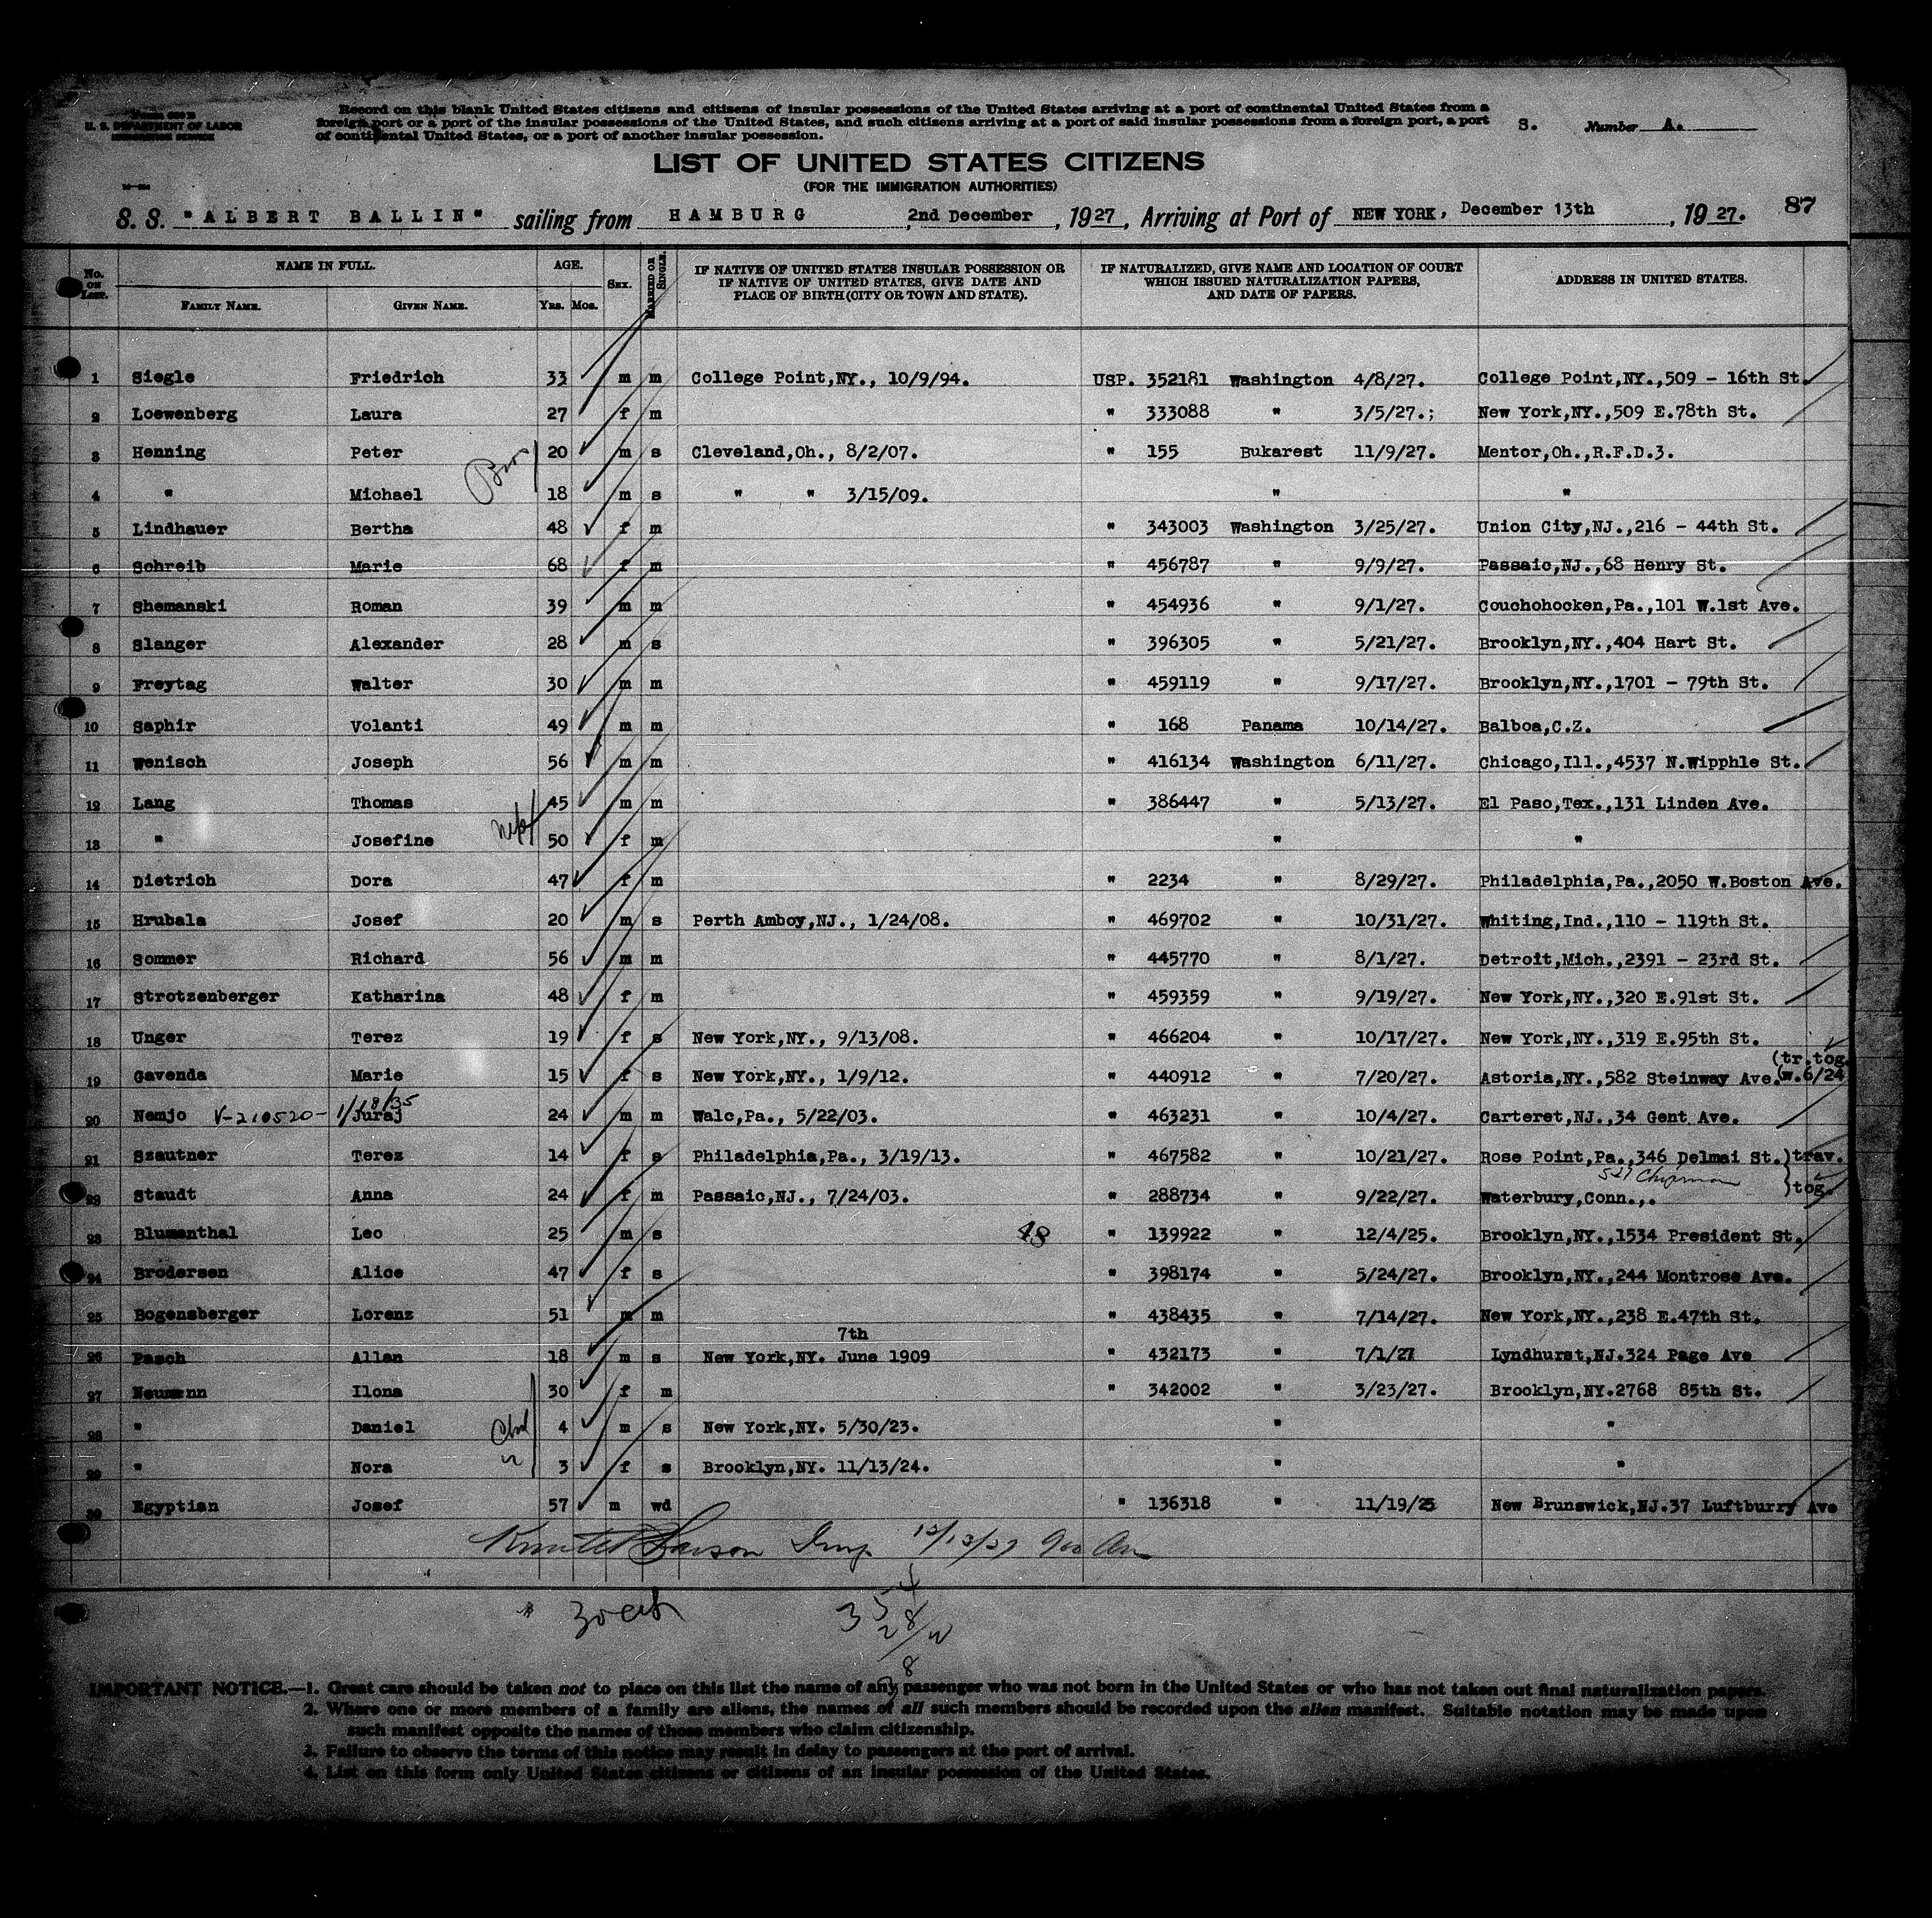 U. S. DEPARTMENT OF LABOR
IMMIGRATION SERVICE
Record on this blank United States citizens and citizens of insular possessions of the United States arriving at a port of continental United States from a
foreign port or a port of the insular possessions of the United States, and such citizens arriving at a port of said insular possessions from a foreign port, a port
of continental United States, or a port of another insular possession.
S. Number A.
LIST OF UNITED STATES CITIZENS
(FOR THE IMMIGRATION AUTHORITIES)
S. S. "ALBERT BALLIN" sailing from HAMBURG, 2nd December, 1927, Arriving at Port of NEW YORK, December 13th, 1927. 87
No. on List. NAME IN FULL. AGE. SEX. MARRIED OR SINGLE. IF NATIVE OF UNITED STATES INSULAR POSSESSION OR IF NATIVE OF UNITED STATES, GIVE DATE AND PLACE OF BIRTH (CITY OR TOWN AND STATE). IF NATURALIZED, GIVE NAME AND LOCATION OF COURT WHICH ISSUED NATURALIZATION PAPERS, AND DATE OF PAPERS. ADDRESS IN UNITED STATES.
FAMILY NAME. GIVEN NAME. YRS. MOS.
1 Siegle Friedrich 33 m m College Point,NY., 10/9/94. USP. 352181 Washington 4/8/27. College Point,NY.,509 - 16th St.
2 Loewenberg Laura 27 f m " 333088 " 3/5/27.; New York,NY.,509 E.78th St.
3 Henning Peter Bros 20 m s Cleveland,Oh., 8/2/07. " 155 Bukarest 11/9/27. Mentor,Oh.,R.F.D.3.
4 " Michael 18 m s " " 3/15/09. " "
5 Lindhauer Bertha 48 f m " 343003 Washington 3/25/27. Union City,NJ.,216 - 44th St.
6 Schreib Marie 68 f m " 456787 " 9/9/27. Passaic,NJ.,68 Henry St.
7 Shemanski Roman 39 m m " 454936 " 9/1/27. Couchohocken,Pa.,101 W.1st Ave.
8 Slanger Alexander 28 m s " 396305 " 5/21/27. Brooklyn,NY.,404 Hart St.
9 Freytag Walter 30 m m " 459119 " 9/17/27. Brooklyn,NY.,1701 - 79th St.
10 Saphir Volanti 49 m m " 168 Panama 10/14/27. Balboa,C.Z.
11 Wenisch Joseph 56 m m " 416134 Washington 6/11/27. Chicago,Ill.,4537 N.Wipphle St.
12 Lang Thomas 45 m m " 386447 " 5/13/27. El Paso,Tex.,131 Linden Ave.
13 " Josefine 50 f m " "
14 Dietrich Dora 47 f m " 2234 " 8/29/27. Philadelphia,Pa.,2050 W.Boston Ave.
15 Hrubala Josef 20 m s Perth Amboy,NJ., 1/24/08. " 469702 " 10/31/27. Whiting,Ind.,110 - 119th St.
16 Sommer Richard 56 m m " 445770 " 8/1/27. Detroit,Mich.,2391 - 23rd St.
17 Strotzenberger Katharina 48 f m " 459359 " 9/19/27. New York,NY.,320 E.91st St.
18 Unger Terez 19 f s New York,NY., 9/13/08. " 466204 " 10/17/27. New York,NY.,319 E.95th St.
(tr.tog
19 Gavenda Marie 15 f s New York,NY., 1/9/12. " 440912 " 7/20/27. Astoria,NY.,582 Steinway Ave.(w.6/24
20 Nemjo V-210520- 1/18/35 Juraj 24 m m Walc,Pa., 5/22/03. " 463231 " 10/4/27. Carteret,NJ.,34 Gent Ave.
21 Szautner Terez 14 f s Philadelphia,Pa., 3/19/13. " 467582 " 10/21/27. Rose Point,Pa.,346 Delmai St.)trav.
527 Chipman
22 Staudt Anna 24 f m Passaic,NJ., 7/24/03. " 288734 " 9/22/27. Waterbury,Conn.,. )tog.
23 Blumenthal Leo 25 m s 48 " 139922 " 12/4/25. Brooklyn,NY.,1534 President St.
24 Brodersen Alice 47 f s " 398174 " 5/24/27. Brooklyn,NY.,244 Montrose Ave.
25 Bogensberger Lorenz 51 m m " 438435 " 7/14/27. New York,NY.,238 E.47th St.
7th
26 Pasch Allan 18 m s New York,NY. June 1909 " 432173 " 7/1/27 Lyndhurst,NJ.324 Page Ave
27 Neumann Ilona 30 f m " 342002 " 3/23/27. Brooklyn,NY.2768 85th St.
28 " Daniel 4 m s New York,NY. 5/30/23. " "
29 " Nora 3 f s Brooklyn,NY. 11/13/24. " "
30 Egyptian Josef 57 m wd " 136318 " 11/19/25 New Brunswick,NJ.37 Luftburry Ave
Larson Insp 12/13/27
IMPORTANT NOTICE.—1. Great care should be taken not to place on this list the name of any passenger who was not born in the United States or who has not taken out final naturalization papers.
2. Where one or more members of a family are aliens, the names of all such members should be recorded upon the alien manifest. Suitable notation may be made upon
such manifest opposite the names of those members who claim citizenship.
3. Failure to observe the terms of this notice may result in delay to passengers at the port of arrival.
4. List on this form only United States citizens or citizens of an insular possession of the United States.